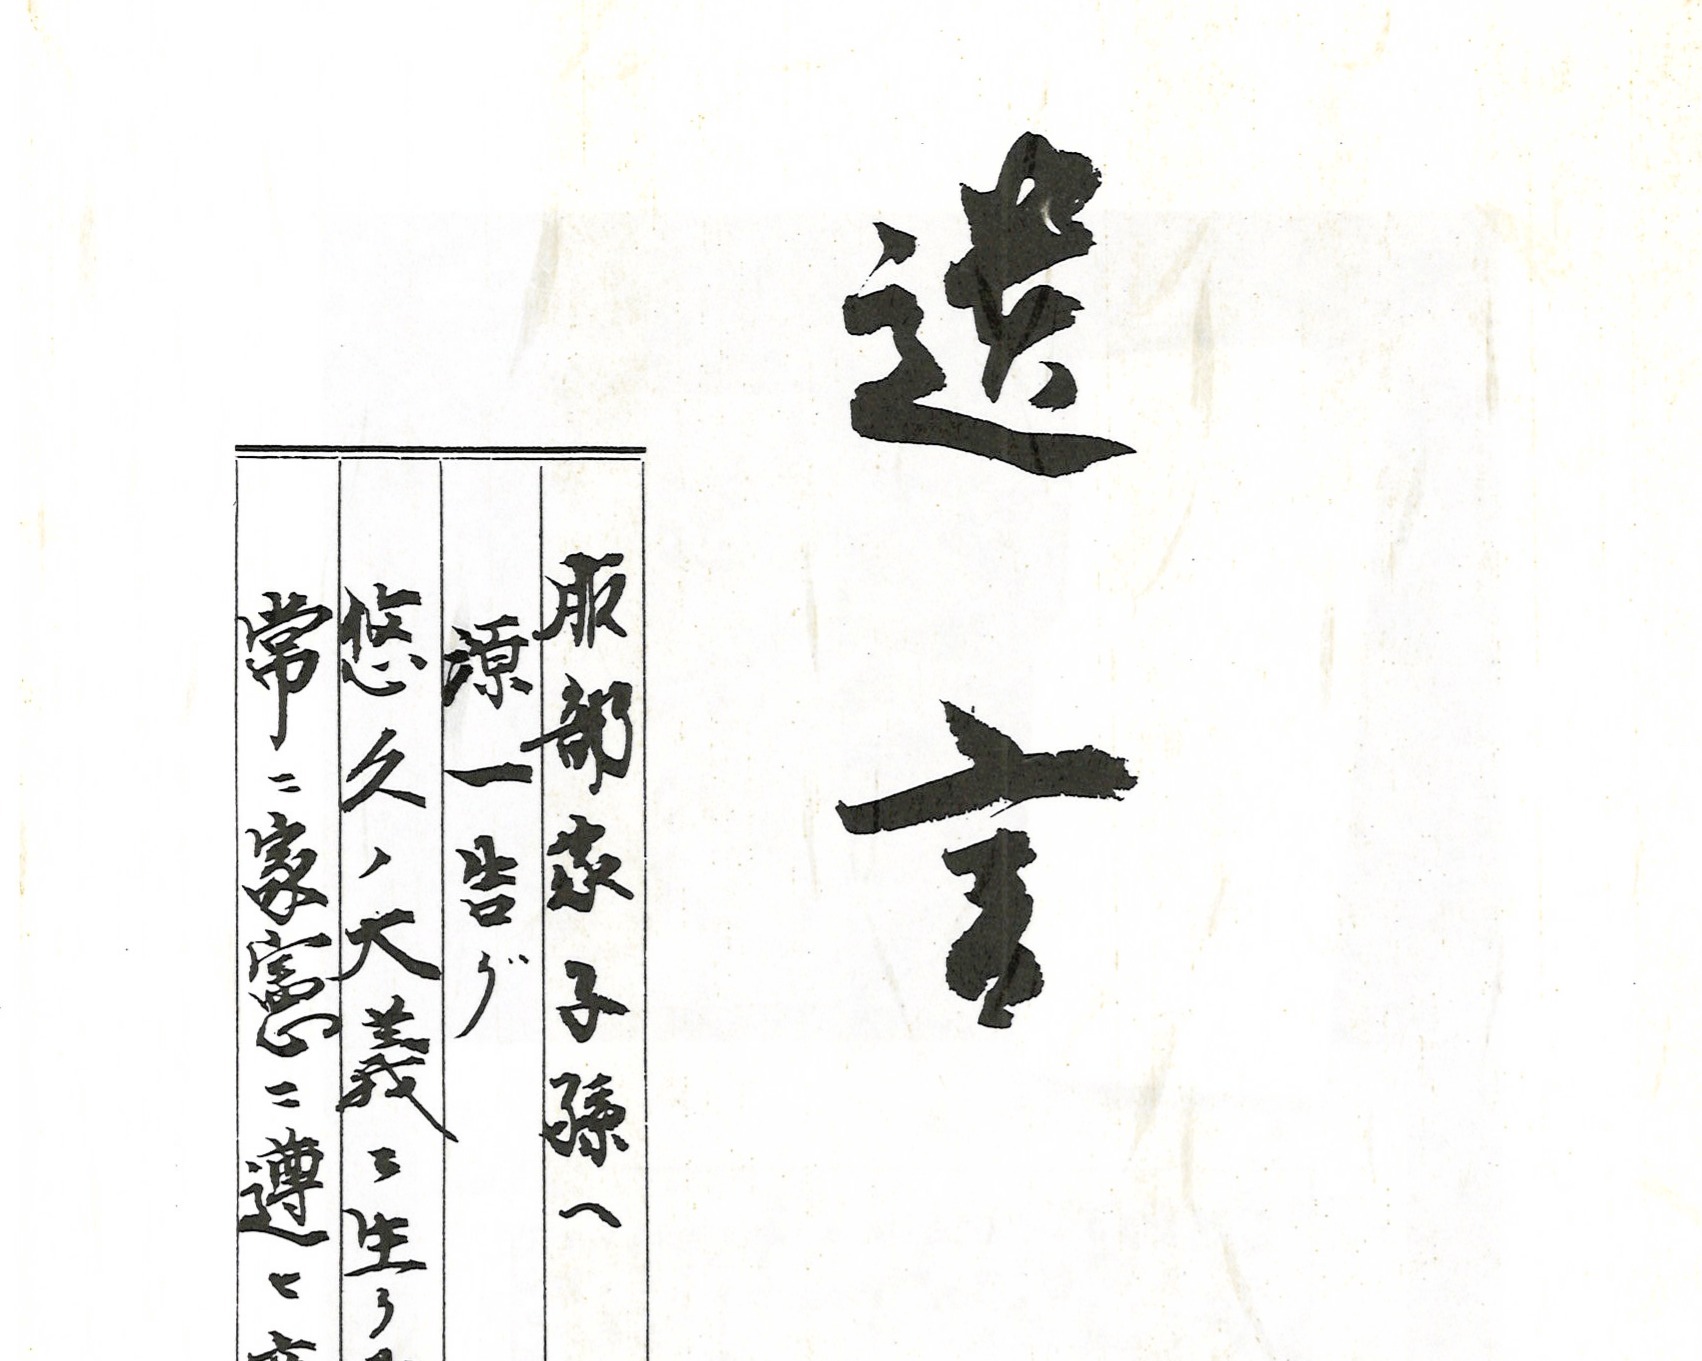 遺言
服部家子孫へ
源一告グ
悠久ノ大義ニ生ク
常ニ家憲ニ遵ヒ